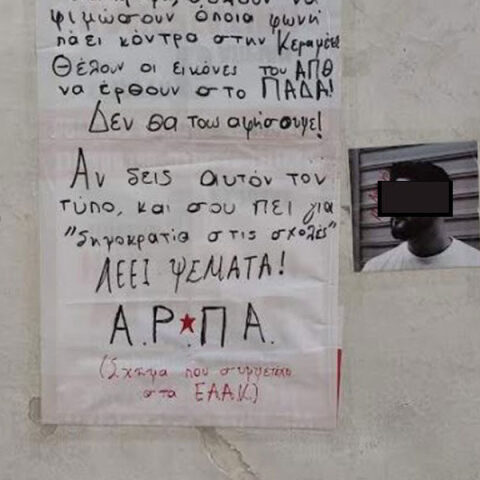 φιμώσουν όποια φωνή
πάει κόντρα στην Κεραμέως
Θέλουν οι εικόνες του ΑΠΘ
να έρθουν στο ΠΑΔΑ!
Δεν θα τους αφήσουμε!
Αν δεις αυτόν τον
τύπο, και σου πει για
"δημοκρατία στις σχολές"
ΛΕΕΙ ΨΕΜΑΤΑ!
Α.Ρ★ΠΑ.
(Σχήμα που συμμετέχει
στα ΕΑΑΚ)